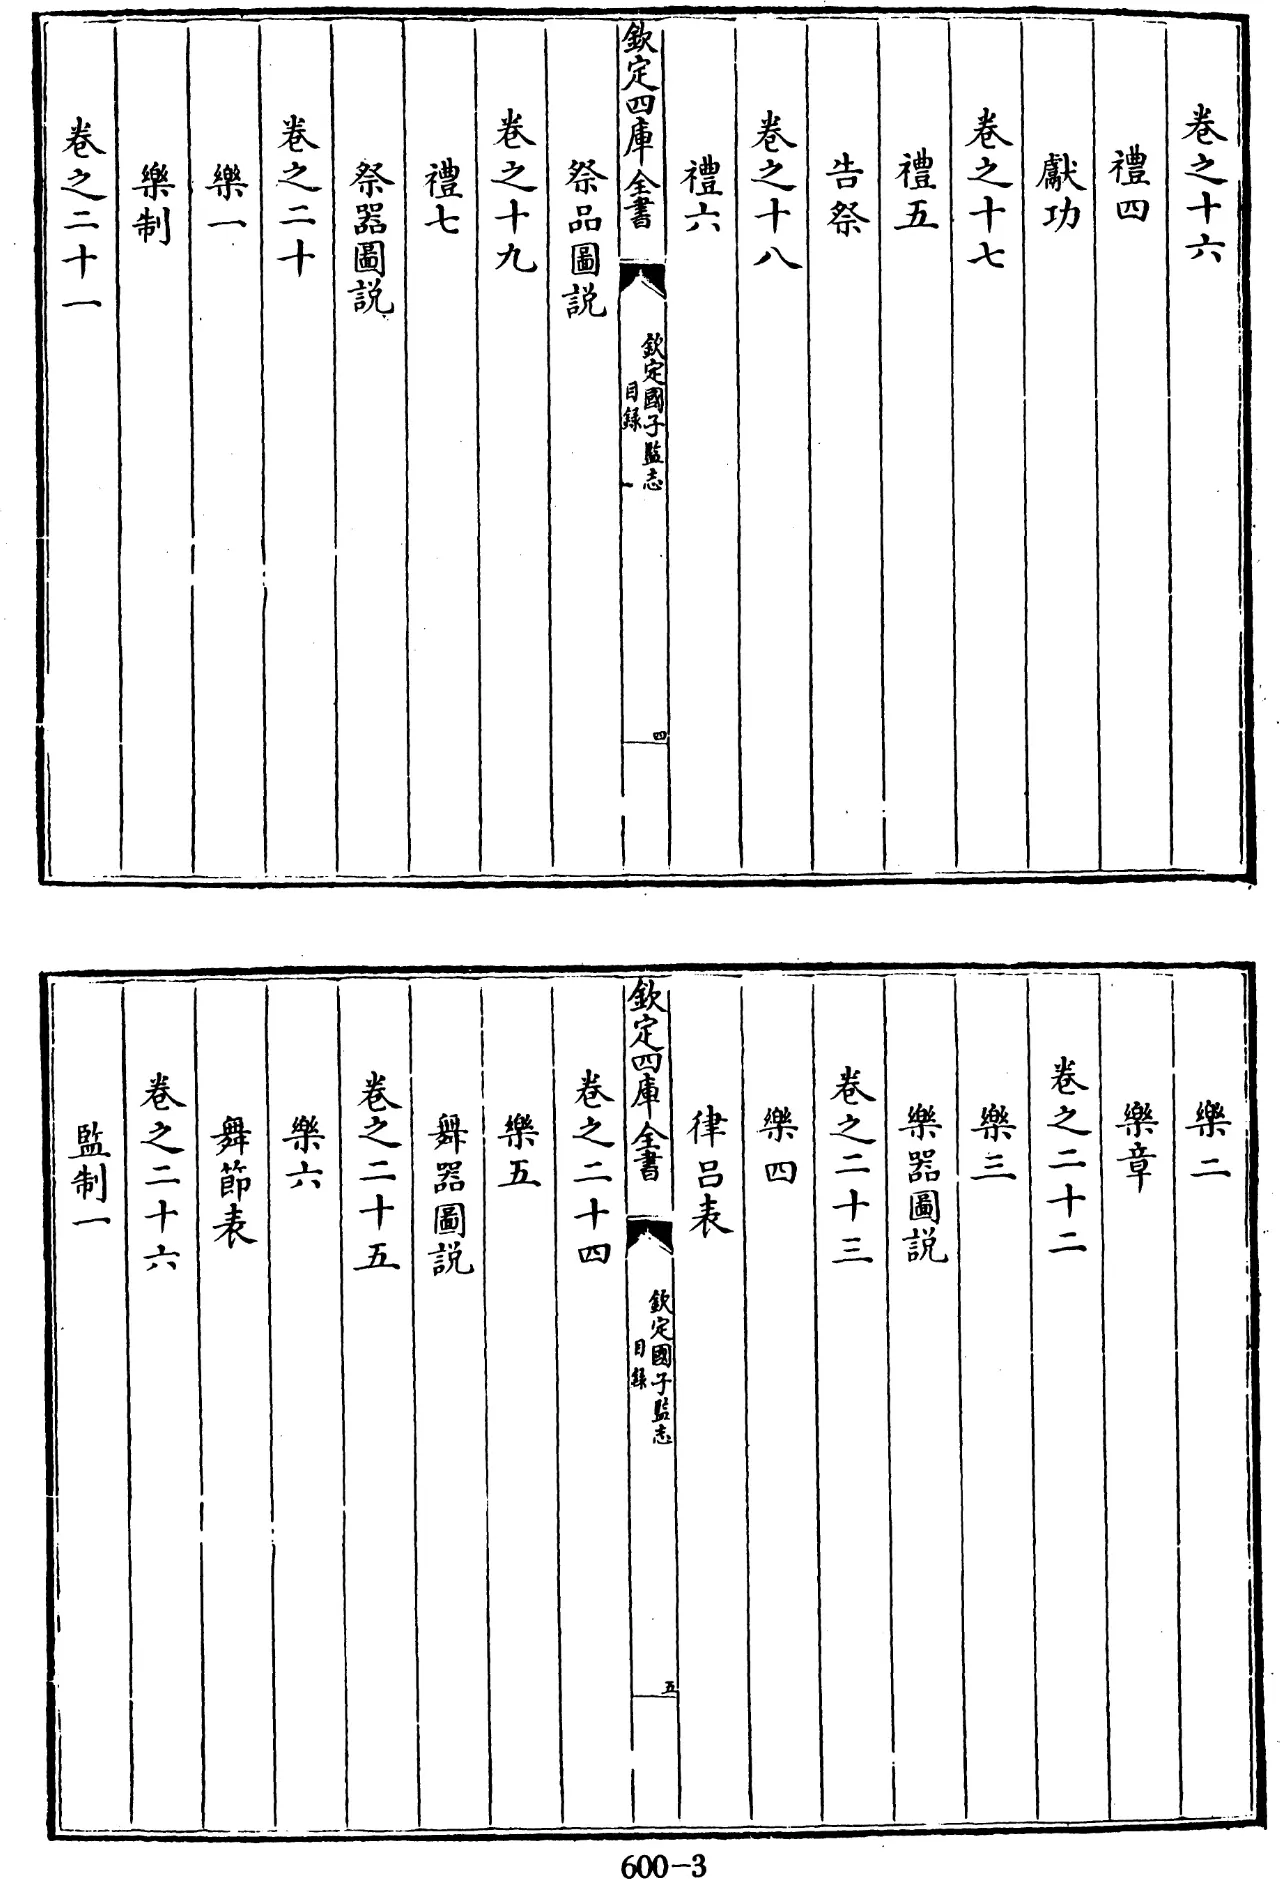 卷之十六
禮四
獻功
卷之十七
禮五
告祭
卷之十八
禮六
欽定四庫全書
欽定國子監志
目録
四
祭品圖説
卷之十九
禮七
祭器圖説
卷之二十
樂一
樂制
卷之二十一
樂二
樂章
卷之二十二
樂三
樂器圖説
卷之二十三
樂四
律呂表
欽定四庫全書
欽定國子監志
目録
五
卷之二十四
樂五
舞器圖説
卷之二十五
樂六
舞節表
卷之二十六
監制一
600-3